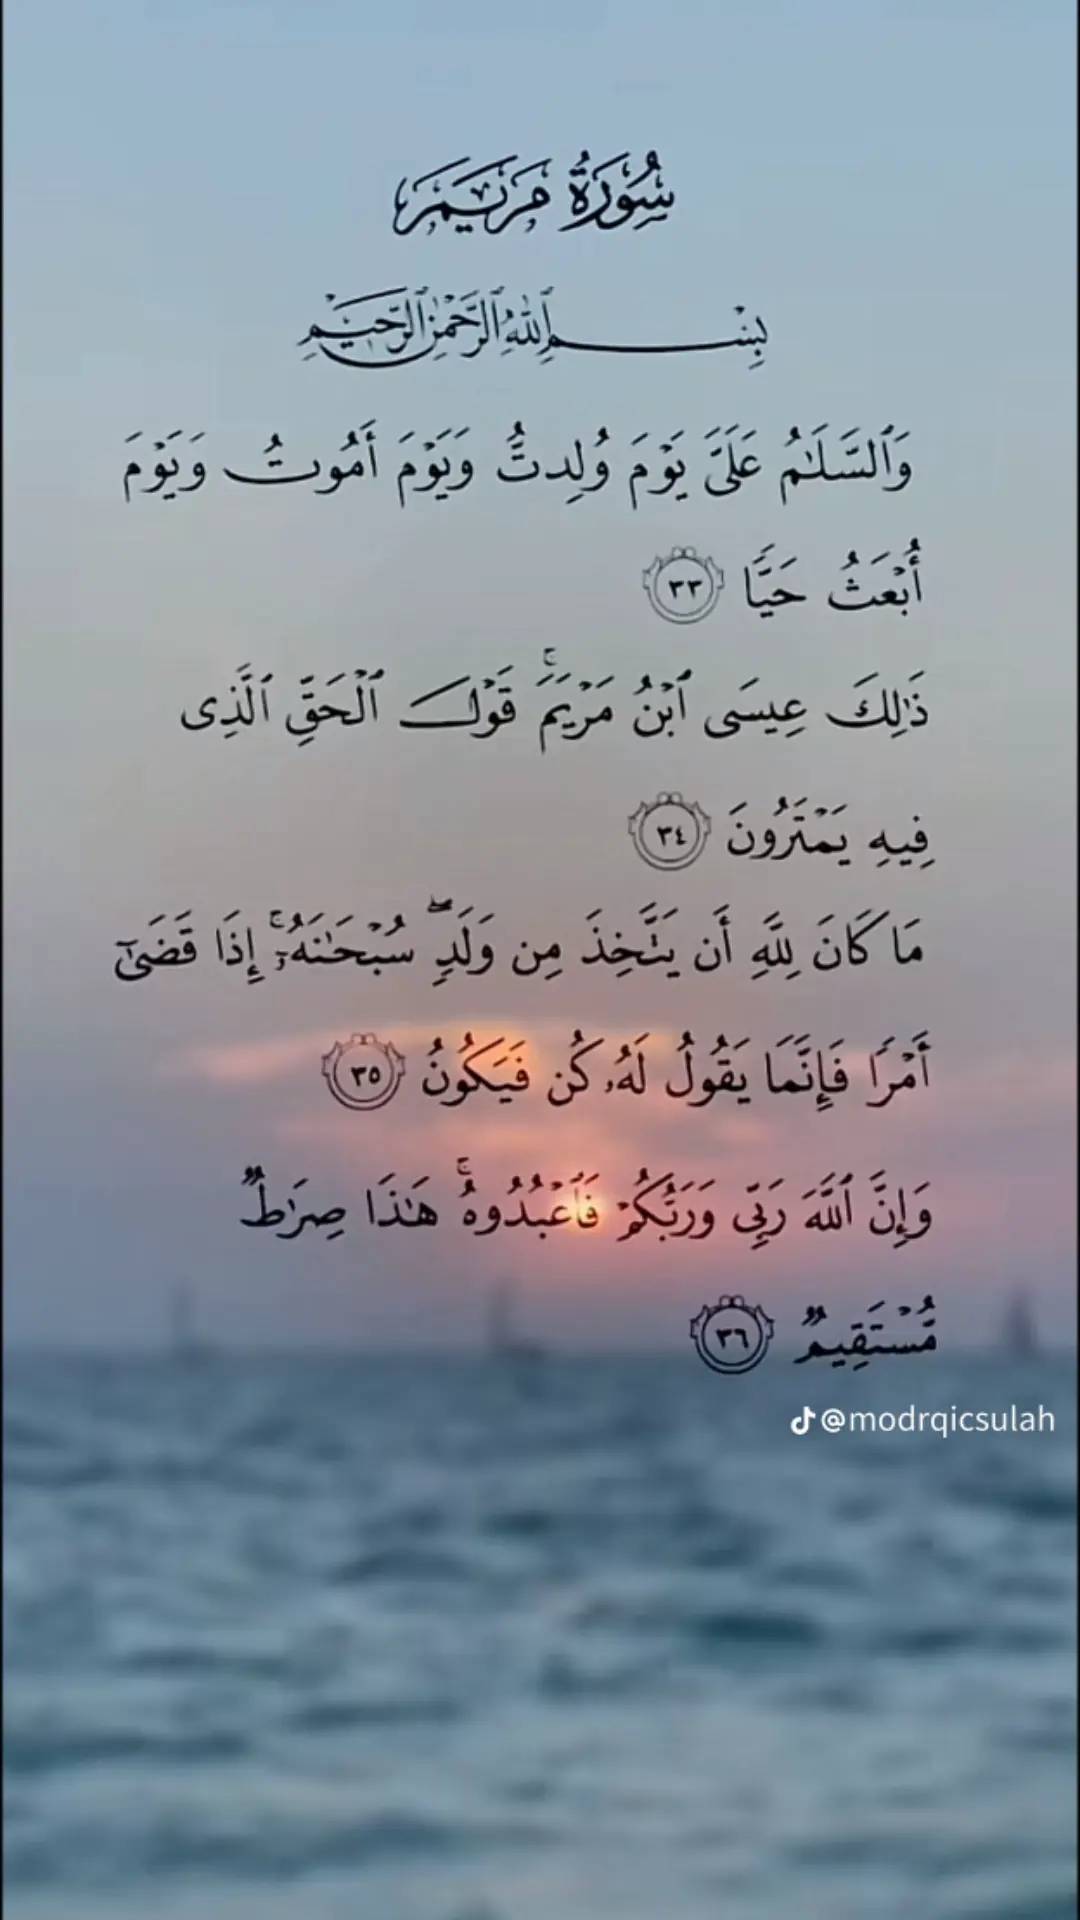 سُورَةُ مَرْيَمَ
بِسْمِ ٱللَّهِ ٱلرَّحْمَٰنِ ٱلرَّحِيمِ
وَٱلسَّلَٰمُ عَلَىَّ يَوْمَ وُلِدتُّ وَيَوْمَ أَمُوتُ وَيَوْمَ
أُبْعَثُ حَيًّا ٣٣
ذَٰلِكَ عِيسَى ٱبْنُ مَرْيَمَ ۚ قَوْلَ ٱلْحَقِّ ٱلَّذِى
فِيهِ يَمْتَرُونَ ٣٤
مَا كَانَ لِلَّهِ أَن يَتَّخِذَ مِن وَلَدٍ ۖ سُبْحَٰنَهُۥٓ ۚ إِذَا قَضَىٰٓ
أَمْرًا فَإِنَّمَا يَقُولُ لَهُۥ كُن فَيَكُونُ ٣٥
وَإِنَّ ٱللَّهَ رَبِّى وَرَبُّكُمْ فَٱعْبُدُوهُ ۚ هَٰذَا صِرَٰطٌ
مُّسْتَقِيمٌ ٣٦
@modrqicsulah